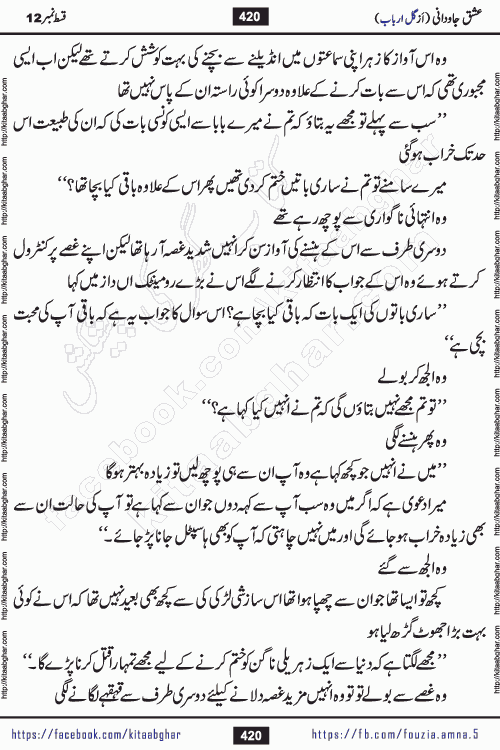 عشق جاودانی (از گل ارباب)
420
قسط نمبر 12
وہ اس آواز کا زہر اپنی سماعتوں میں انڈیلنے سے بچنے کی بہت کوشش کرتے تھے لیکن اب ایسی
مجبوری تھی کہ اس سے بات کرنے کے علاوہ دوسرا کوئی راستہ ان کے پاس نہیں تھا
’’سب سے پہلے تو مجھے یہ بتاؤ کہ تم نے میرے بابا سے ایسی کونسی بات کی کہ ان کی طبیعت اس
حد تک خراب ہو گئی
میرے سامنے تو تم نے ساری باتیں ختم کر دی تھیں پھر اس کے علاوہ باقی کیا بچا تھا؟‘‘
وہ انتہائی ناگواری سے پوچھ رہے تھے
دوسری طرف سے اس کے ہنسنے کی آواز سن کر انہیں شدید غصہ آ رہا تھا لیکن اپنے غصے پر کنٹرول
کرتے ہوئے وہ اس کے جواب کا انتظار کرنے لگے اس نے بڑے رومینٹک اں داز میں کہا
’’ساری باتوں کی ایک بات کہ باقی کیا بچا ہے؟ اس سوال کا جواب یہ ہے کہ باقی آپ کی محبت
بچی ہے‘‘
وہ الجھ کر بولے
’’تو تم مجھے نہیں بتاؤں گی کہ تم نے انہیں کیا کہا ہے؟‘‘
وہ پھر ہنسنے لگی
’’میں نے انہیں جو کچھ کہا ہے وہ آپ ان سے ہی پوچھ لیں تو زیادہ بہتر ہو گا
میرا دعوی ہے کہ اگر میں وہ سب آپ سے کہہ دوں جو ان سے کہا ہے تو آپ کی حالت ان سے
بھی زیادہ خراب ہو جائے گی اور میں نہیں چاہتی کہ آپ کو بھی ہاسپٹل جانا پڑ جائے۔‘‘
وہ الجھ سے گئے
کچھ تو ایسا تھا جو ان سے چھپا ہوا تھا اس سازشی لڑکی کی سے کچھ بھی بعید نہیں تھا کہ اس نے کوئی
بہت بڑا جھوٹ گڑھ لیا ہو
’’مجھے لگتا ہے کہ دنیا سے ایک زہریلی ناگن کو ختم کرنے کے لیے مجھے تمہارا قتل کرنا پڑے گا۔‘‘
وہ غصے سے بولے تو تو وہ انہیں مزید غصہ دلانے کیلئے دوسری طرف سے قہقہے لگانے لگی
http://kitaabghar.com
facebook.com/kitaabghar
kitaabghar.com
کتاب گھر کی پیشکش
https://facebook.com/kitaabghar
420
https://fb.com/fouzia.amna.5